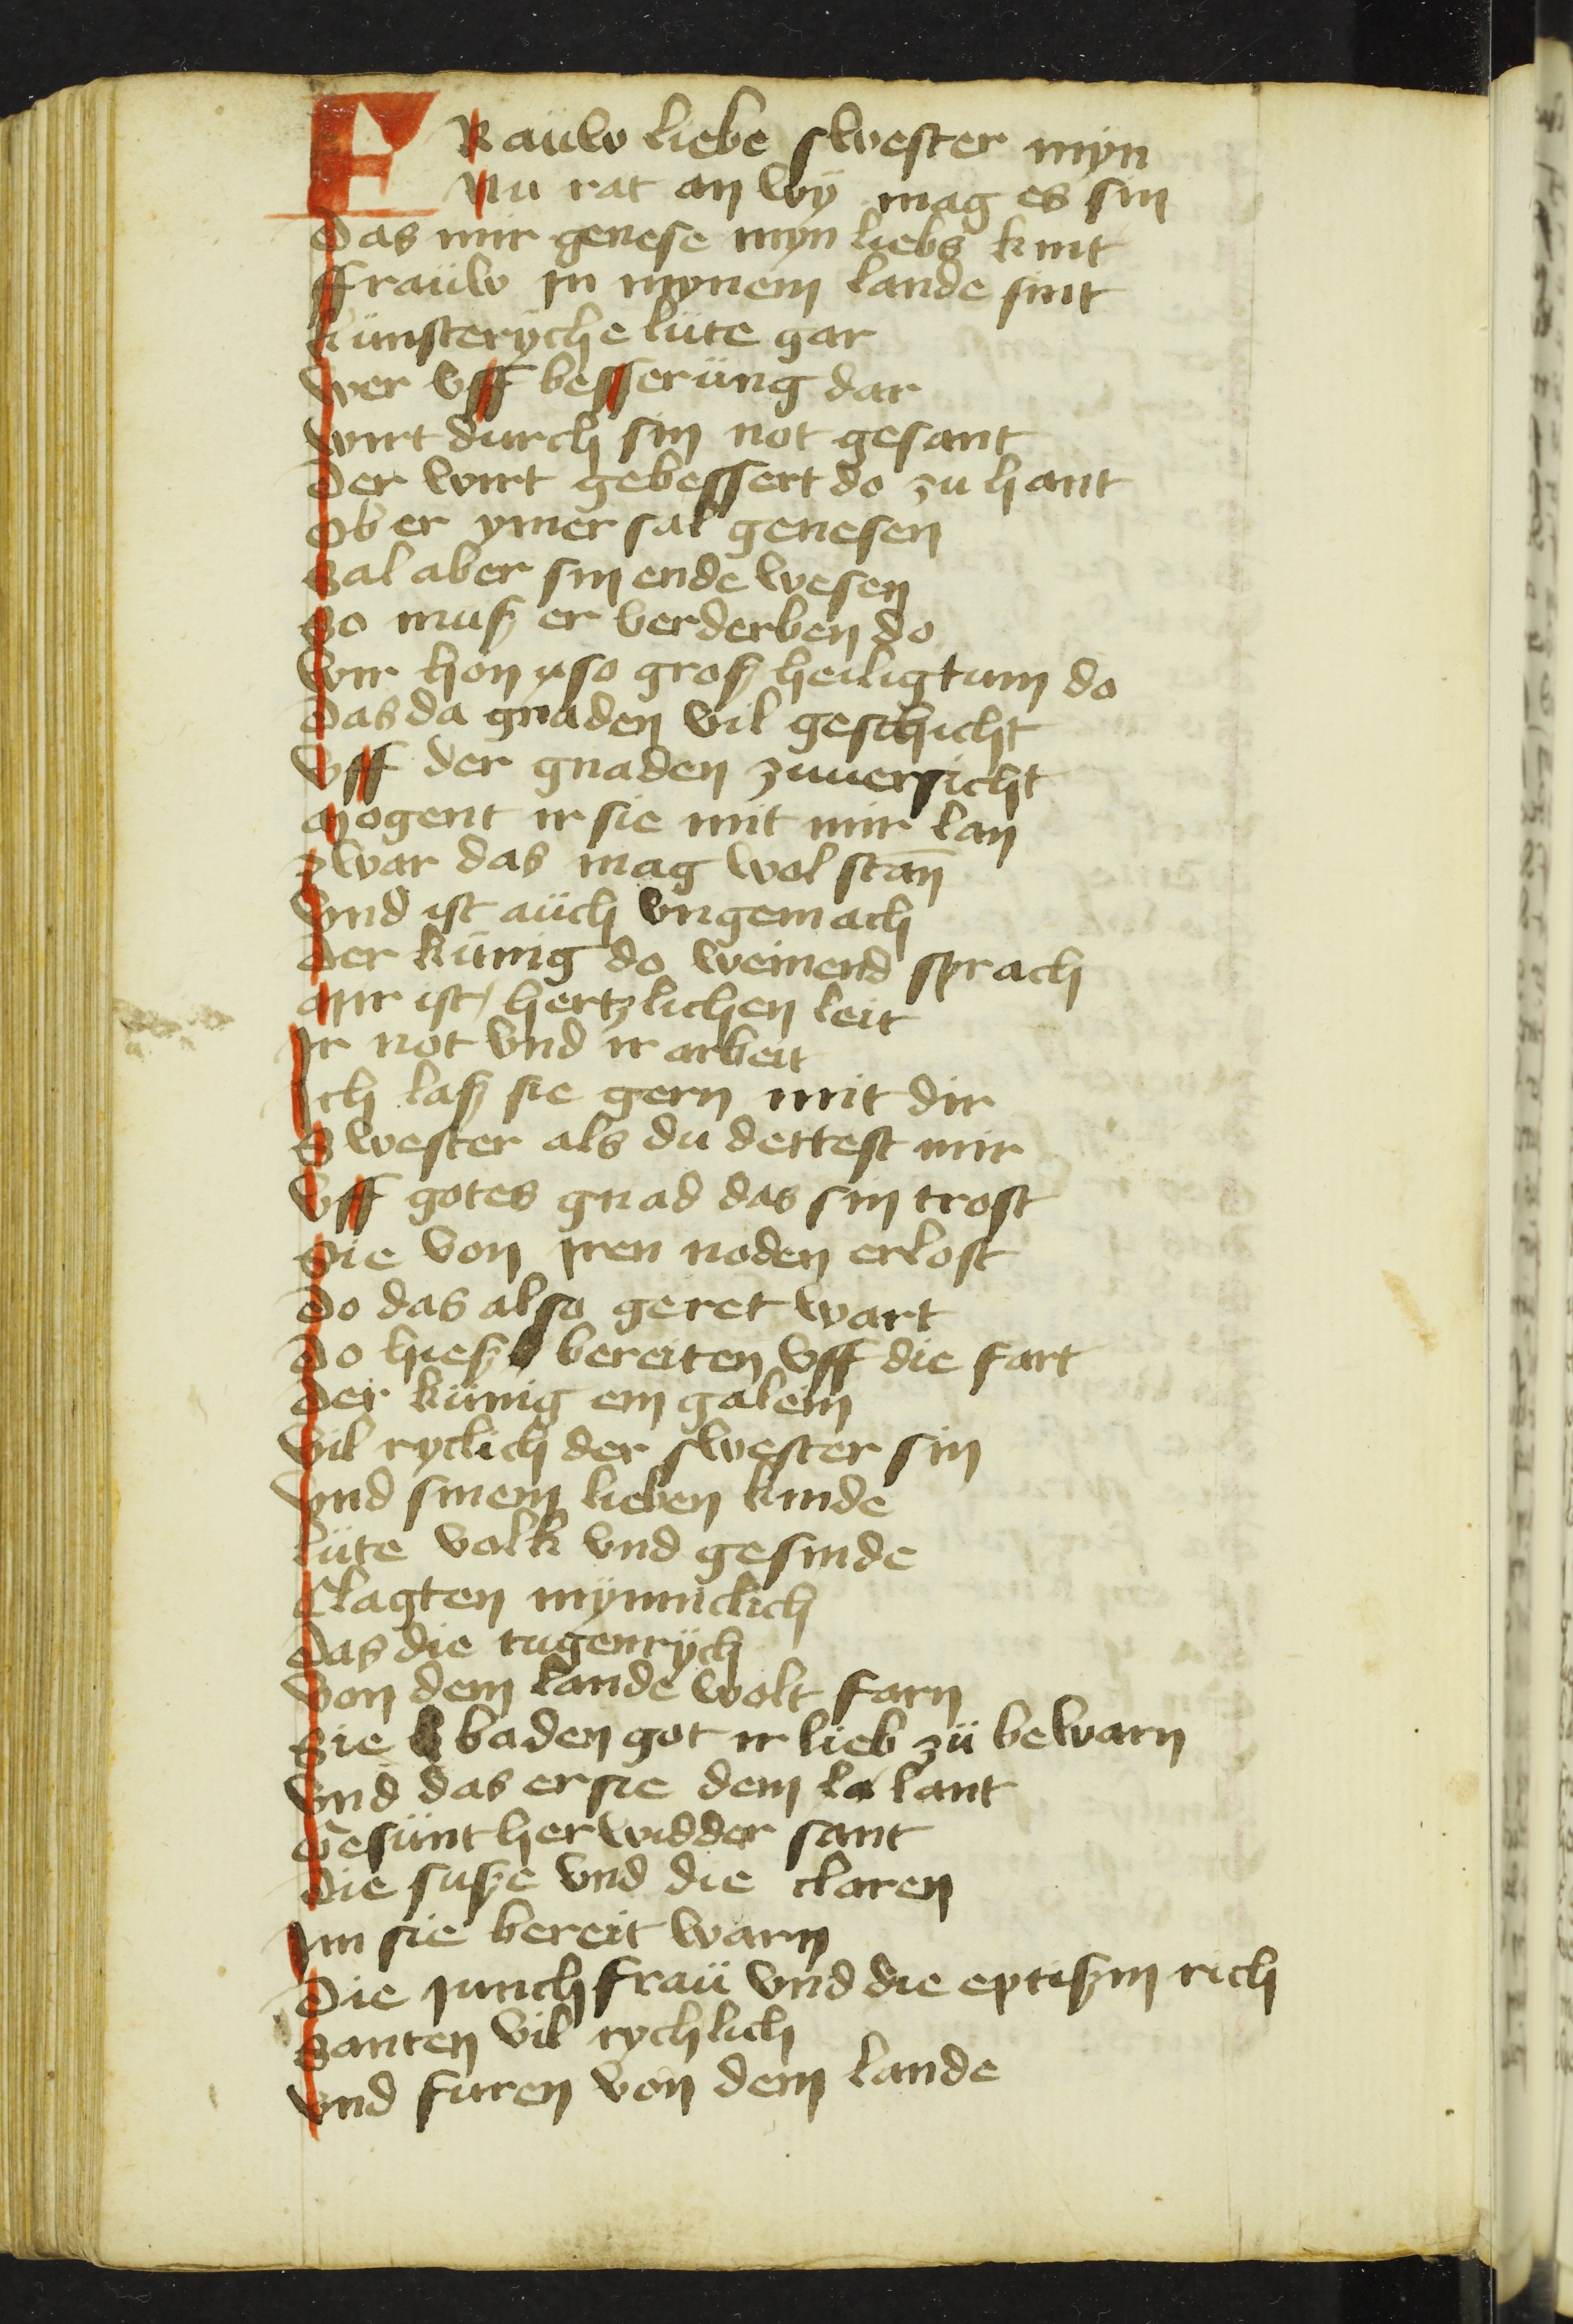 FRaüw liebe swester myn
Nu rat an wÿ mag es sin
Das mir genese myn liebs kint
ffraüw jn mynem lande sint
künsterÿche lüte gar
wer vff besserüng dar
wirt dürch sin not gesant
Der wirt gebessert do zu hant
Ob er ymer sal genesen
Sal aber sin ende wesen
So muß er verderben do
wir hon so groß heiligtum do
Das da gnaden vil geschicht
Vff der gnaden zuuersicht
Mogent ir sie mit mir lan
zwar das mag wol stan̄
Vnd ist aüch vngemach
Der künig do weinend sprach
Mir ist hertzlichen leit
Jr not vnd ir arbeit
Ich laß sie gern mit dir
Swester als du dettest mir
Vff gotes gnad das sin trost
Sie von jren noden erlost
Do das also geret wart
Do hieß bereiten vff die fart
Der künig em galein
Vil ryclich der swester sin
Vnd sinem lieben kinde
lüte volk vnd gesinde
Clagten mÿnniclich
Das die tugentrÿch
Von dem lande wolt farn
Sie baden got ir lieb zü bewarn
Vnd das er sie dem la lant
Gesünt her widder sant
Die suße vnd die claren
Jm sie bereit warn
Die junchfraü vnd die eptißin rich
Santen vil rychlich
Vnd furen von dem lande